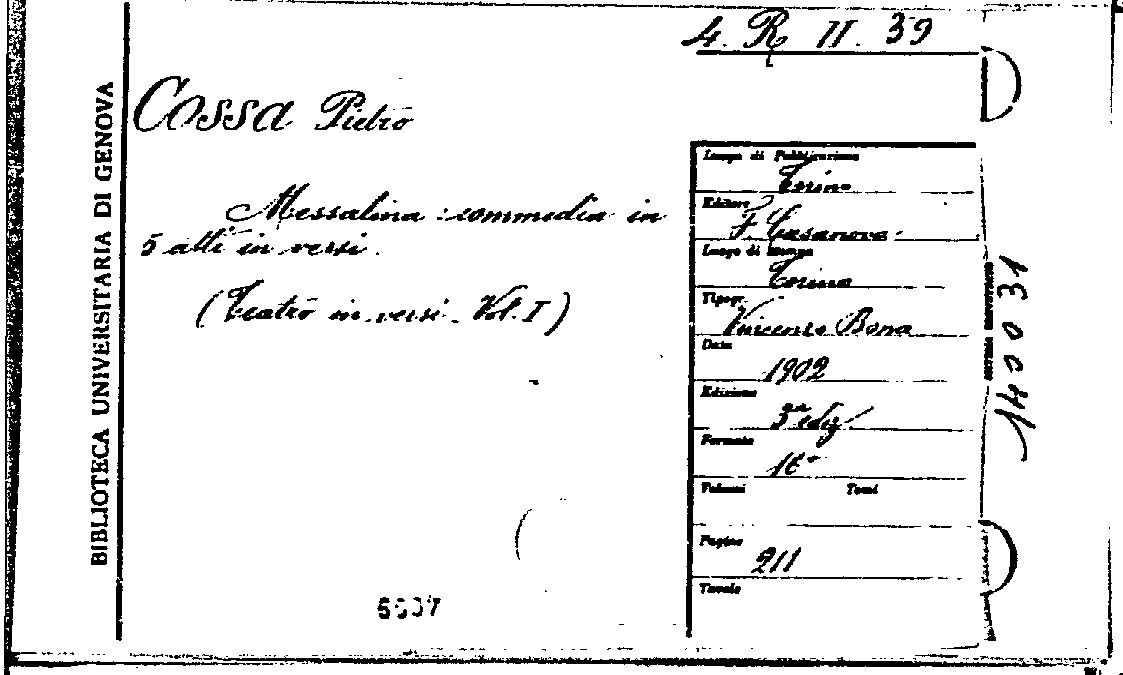 4. R II. 39
BIBLIOTECA UNIVERSITARIA DI GENOVA
COSSA Pietro
Messalina: commedia in
5 atti in versi.
(Teatro in versi. Vol. I)
Luogo di Pubblicazione
Torino
Editore
F. Casanova
Luogo di stampa
Torino
Tipogr.
Vincenzo Bona
Data
1902
Edizione
3ª ediz
Formato
16°
Volumi Tomi
Pagine
211
Tavole
140031